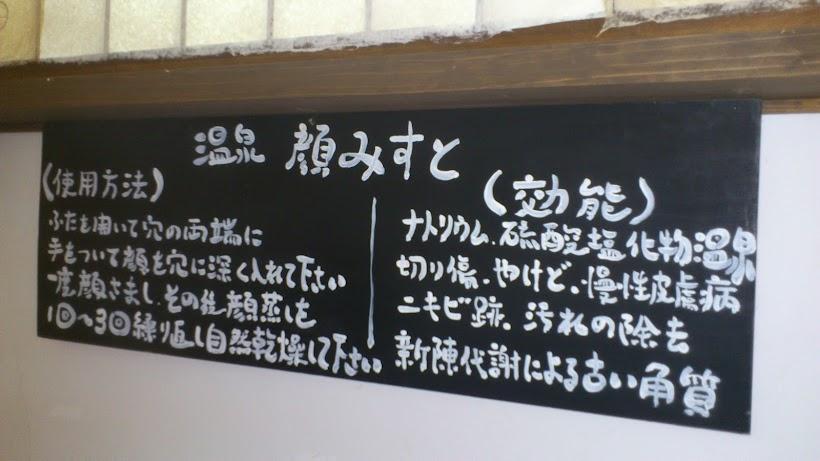 温泉 顔みすと
(使用方法)
ふたを開いて穴の両端に
手をついて顔を穴に深く入れて下さい
一度顔さまし、その後顔蒸しを
1回〜3回繰り返し自然乾燥して下さい
(効能)
ナトリウム、硫酸塩化物温泉
切り傷、やけど、慢性皮膚病
ニキビ跡、汚れの除去
新陳代謝による古い角質